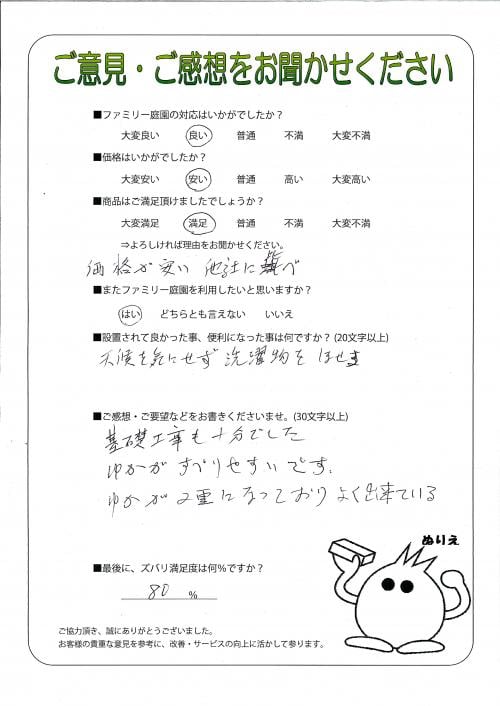 ご意見・ご感想をお聞かせください
■ファミリー庭園の対応はいかがでしたか？
大変良い 良い 普通 不満 大変不満
■価格はいかがでしたか？
大変安い 安い 普通 高い 大変高い
■商品はご満足頂けましたでしょうか？
大変満足 満足 普通 不満 大変不満
⇒よろしければ理由をお聞かせください。
価格が安い 他社に比べ
■またファミリー庭園を利用したいと思いますか？
はい どちらとも言えない いいえ
■設置されて良かった事、便利になった事は何ですか？(20文字以上)
天候を気にせず 洗濯物を ほせます
■ご感想・ご要望などをお書きくださいませ。(30文字以上)
基礎工事も十分でした
ゆかが すべりやすいです。
ゆかが2重になっており よく出来ている
ぬりえ
■最後に、ズバリ満足度は何％ですか？
80 ％
ご協力頂き、誠にありがとうございました。
お客様の貴重な意見を参考に、改善・サービスの向上に活かして参ります。